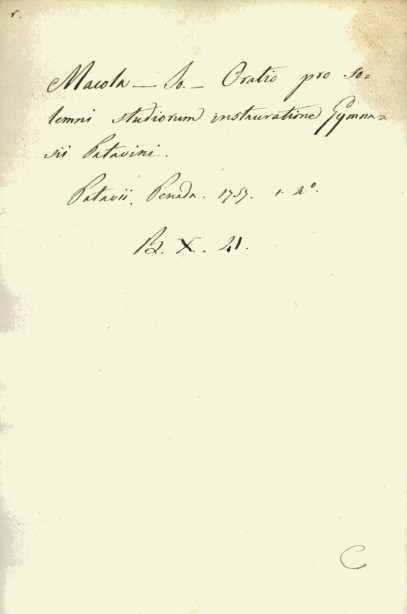 Macola — Jo. — Oratio pro so=
lemni studiorum instauratione Gymna=
sii Patavini.
Patavii. Penada. 1757. 1. 4°.
B. X. 41.
C